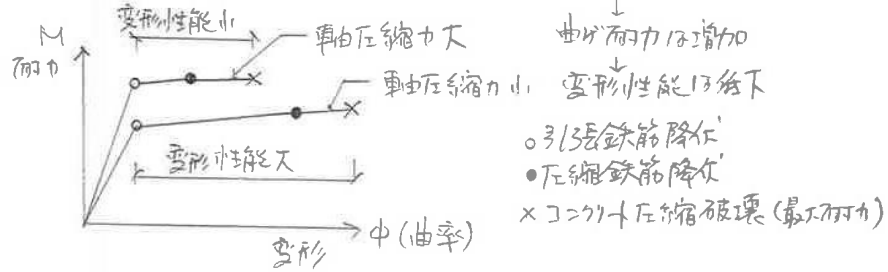 変形性能小
M
耐力
軸圧縮力大
軸圧縮力小
変形性能大
変形
φ(曲率)
↓
曲げ耐力は増加
↓
変形性能は低下
○引張鉄筋降伏
●圧縮鉄筋降伏
×コンクリート圧縮破壊(最大耐力)